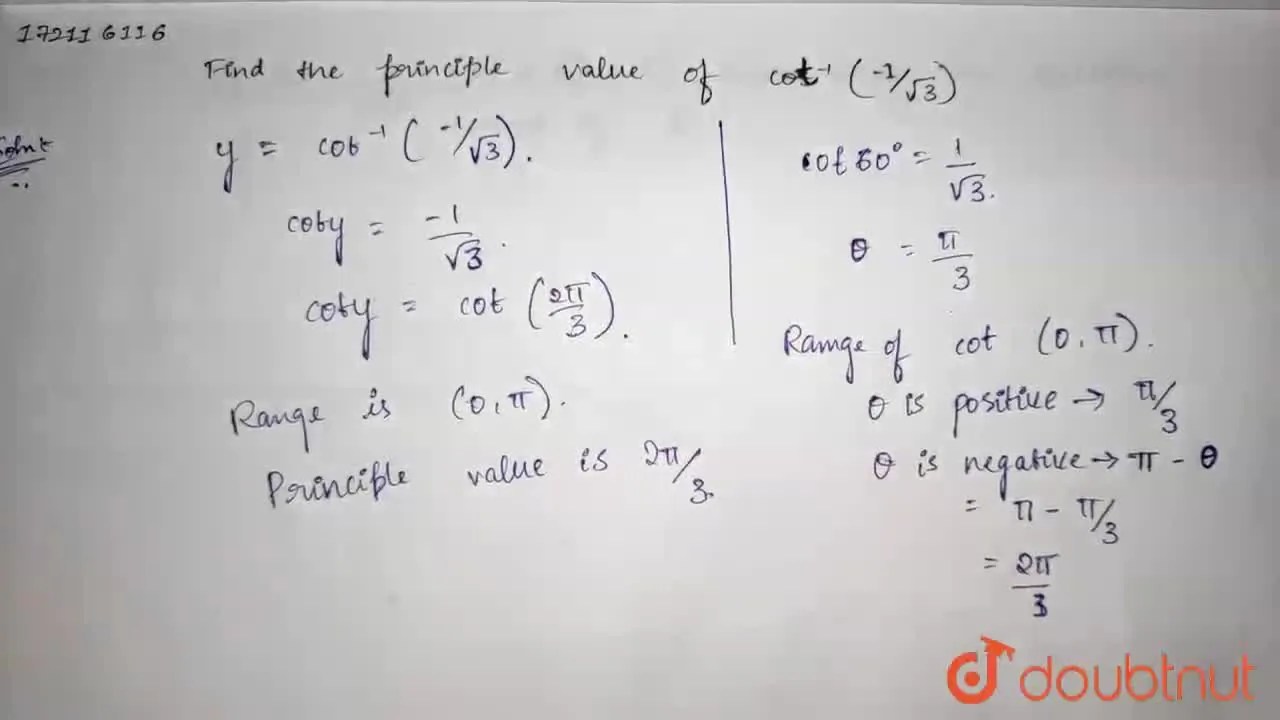 17211 6116
Find the principle value of cot⁻¹ (-1/√3)
Soln:
y = cot⁻¹ (-1/√3).
coty = -1/√3.
coty = cot (2π/3).
Range is (0,π).
Principle value is 2π/3.
cot 60° = 1/√3.
θ = π/3
Range of cot (0,π).
θ is positive → π/3
θ is negative → π - θ
= π - π/3
= 2π/3
doubtnut